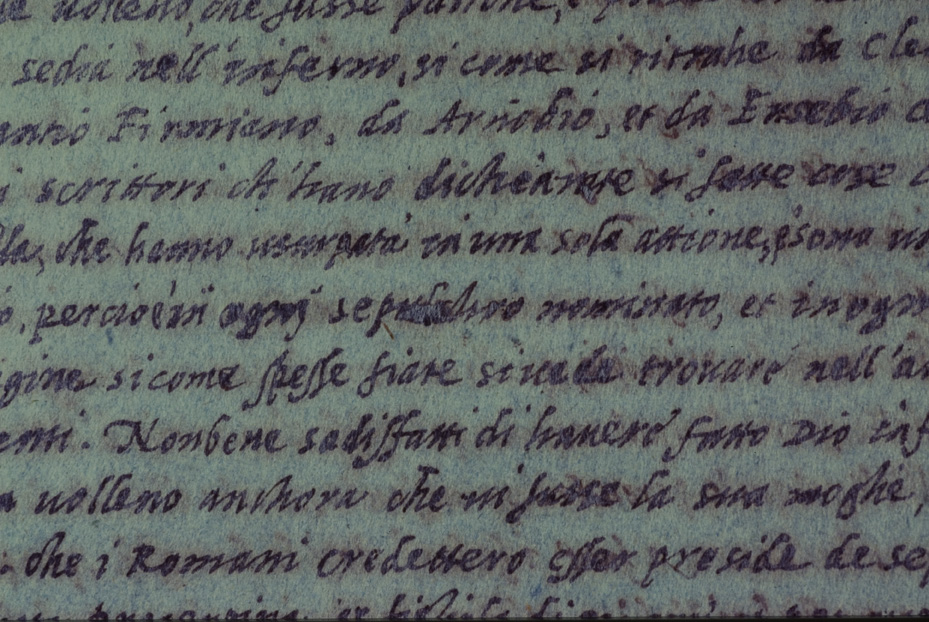 uolleno, che fusse
sedia nell'inferno, si come si ritrahe da Cle
antio Firmiano, da Arnobio, et da Eusebio
i scrittori ch'hano dichiarate si fatte cose
la, che hanno usurpata in una sola attione,
o, percioè in ogni sepulchro nominato, et in ogn
gine si come spesse fiate si uede trouare nell'a
enti. Non bene sadisfatti di hauere fatto Dio inf
uolleno anchora che ui fusse la sua moglie,
che i Romani credettero esser preside de se